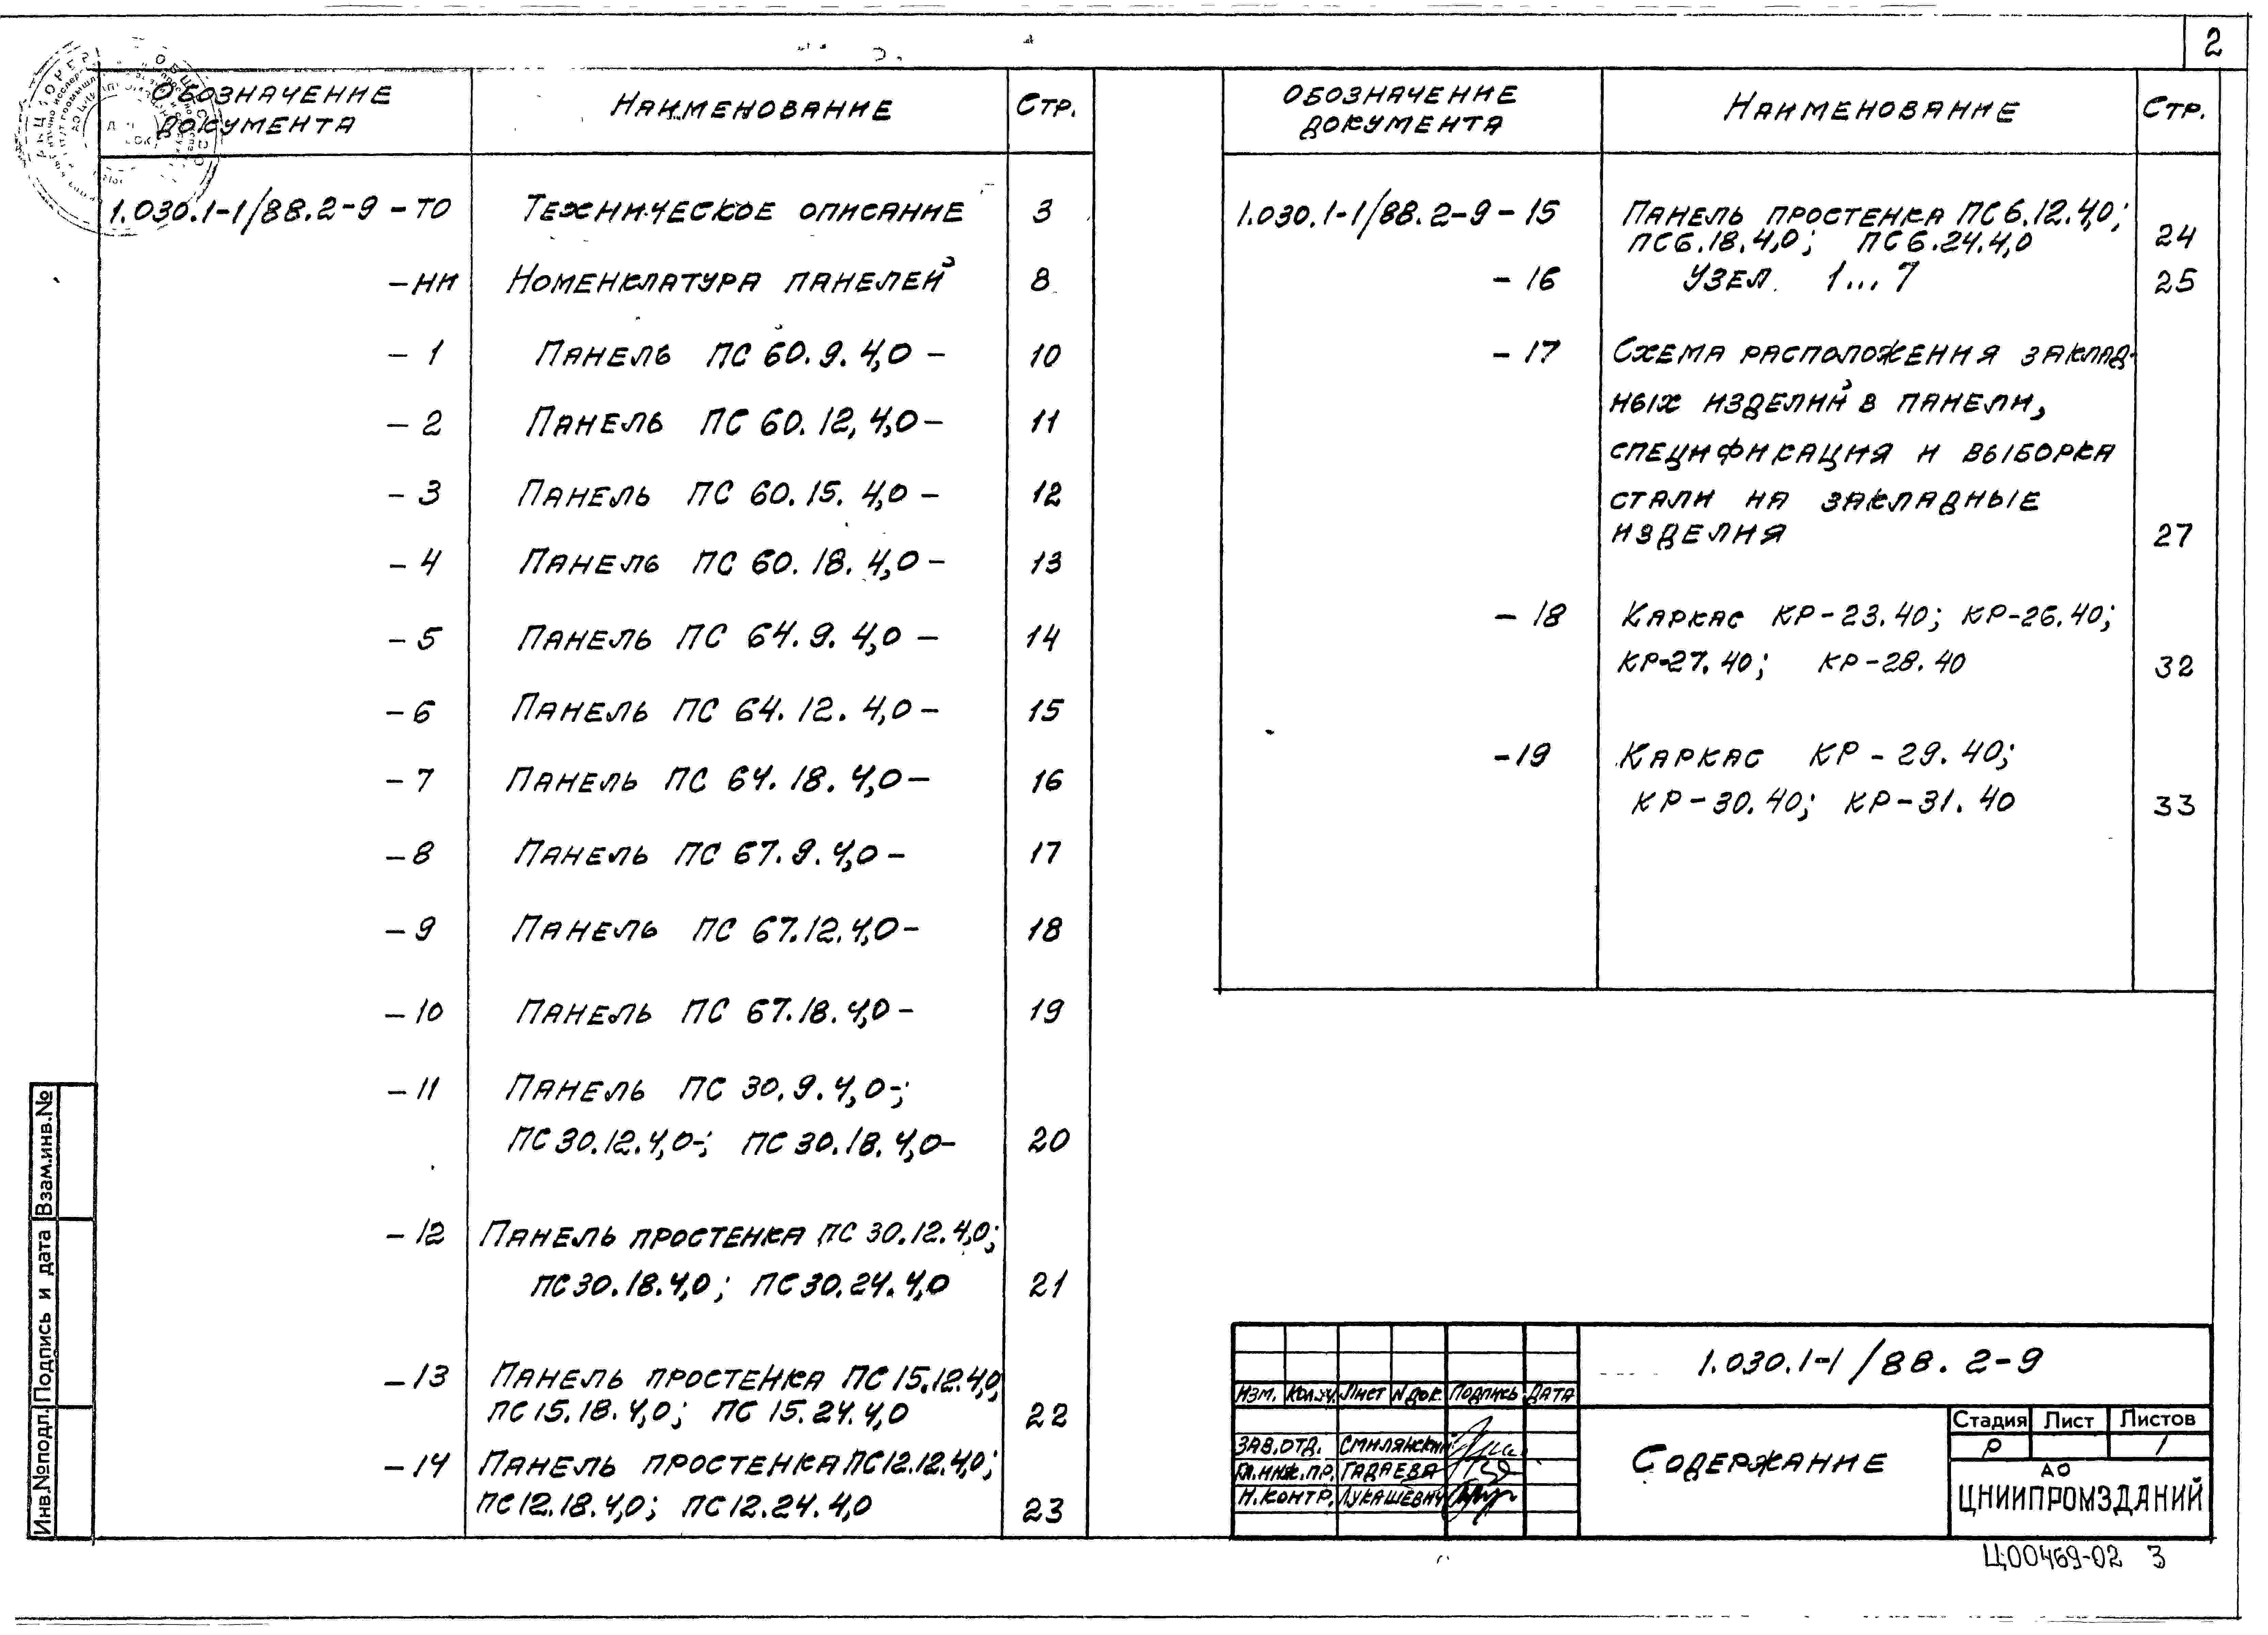 2
Обозначение документа Наименование Стр.
1.030.1-1/88.2-9 - ТО Техническое описание 3
- НИ Номенклатура панелей 8
- 1 Панель ПС 60.9.4,0 - 10
- 2 Панель ПС 60.12,4,0 - 11
- 3 Панель ПС 60.15.4,0 - 12
- 4 Панель ПС 60.18.4,0 - 13
- 5 Панель ПС 64.9.4,0 - 14
- 6 Панель ПС 64.12.4,0 - 15
- 7 Панель ПС 64.18.4,0 - 16
- 8 Панель ПС 67.9.4,0 - 17
- 9 Панель ПС 67.12.4,0 - 18
- 10 Панель ПС 67.18.4,0 - 19
- 11 Панель ПС 30.9.4,0-;
ПС 30.12.4,0-; ПС 30.18.4,0- 20
- 12 Панель простенка ПС 30.12.4,0;
ПС 30.18.4,0; ПС 30.24.4,0 21
- 13 Панель простенка ПС 15.12.4,0;
ПС 15.18.4,0; ПС 15.24.4,0 22
- 14 Панель простенка ПС 12.12.4,0;
ПС 12.18.4,0; ПС 12.24.4,0 23
Обозначение документа Наименование Стр.
1.030.1-1/88.2-9 - 15 Панель простенка ПС 6.12.4,0;
ПС 6.18.4,0; ПС 6.24.4,0 24
- 16 Узел 1...7 25
- 17 Схема расположения заклад-
ных изделий в панели,
спецификация и выборка
стали на закладные
изделия 27
- 18 Каркас КР-23.40; КР-26.40;
КР-27.40; КР-28.40 32
- 19 Каркас КР-29.40;
КР-30.40; КР-31.40 33
Взам.инв.№
Подпись и дата
Инв.№подл.
1.030.1-1/88.2-9
Изм. Кол.уч. Лист N док. Подпись Дата
Зав.отд. Смилянский
Гл.инж.пр. Гадаева
Н.контр. Лукашевич
Содержание
Стадия Лист Листов
Р 1
АО
ЦНИИПРОМЗДАНИЙ
Ц00469-02 3